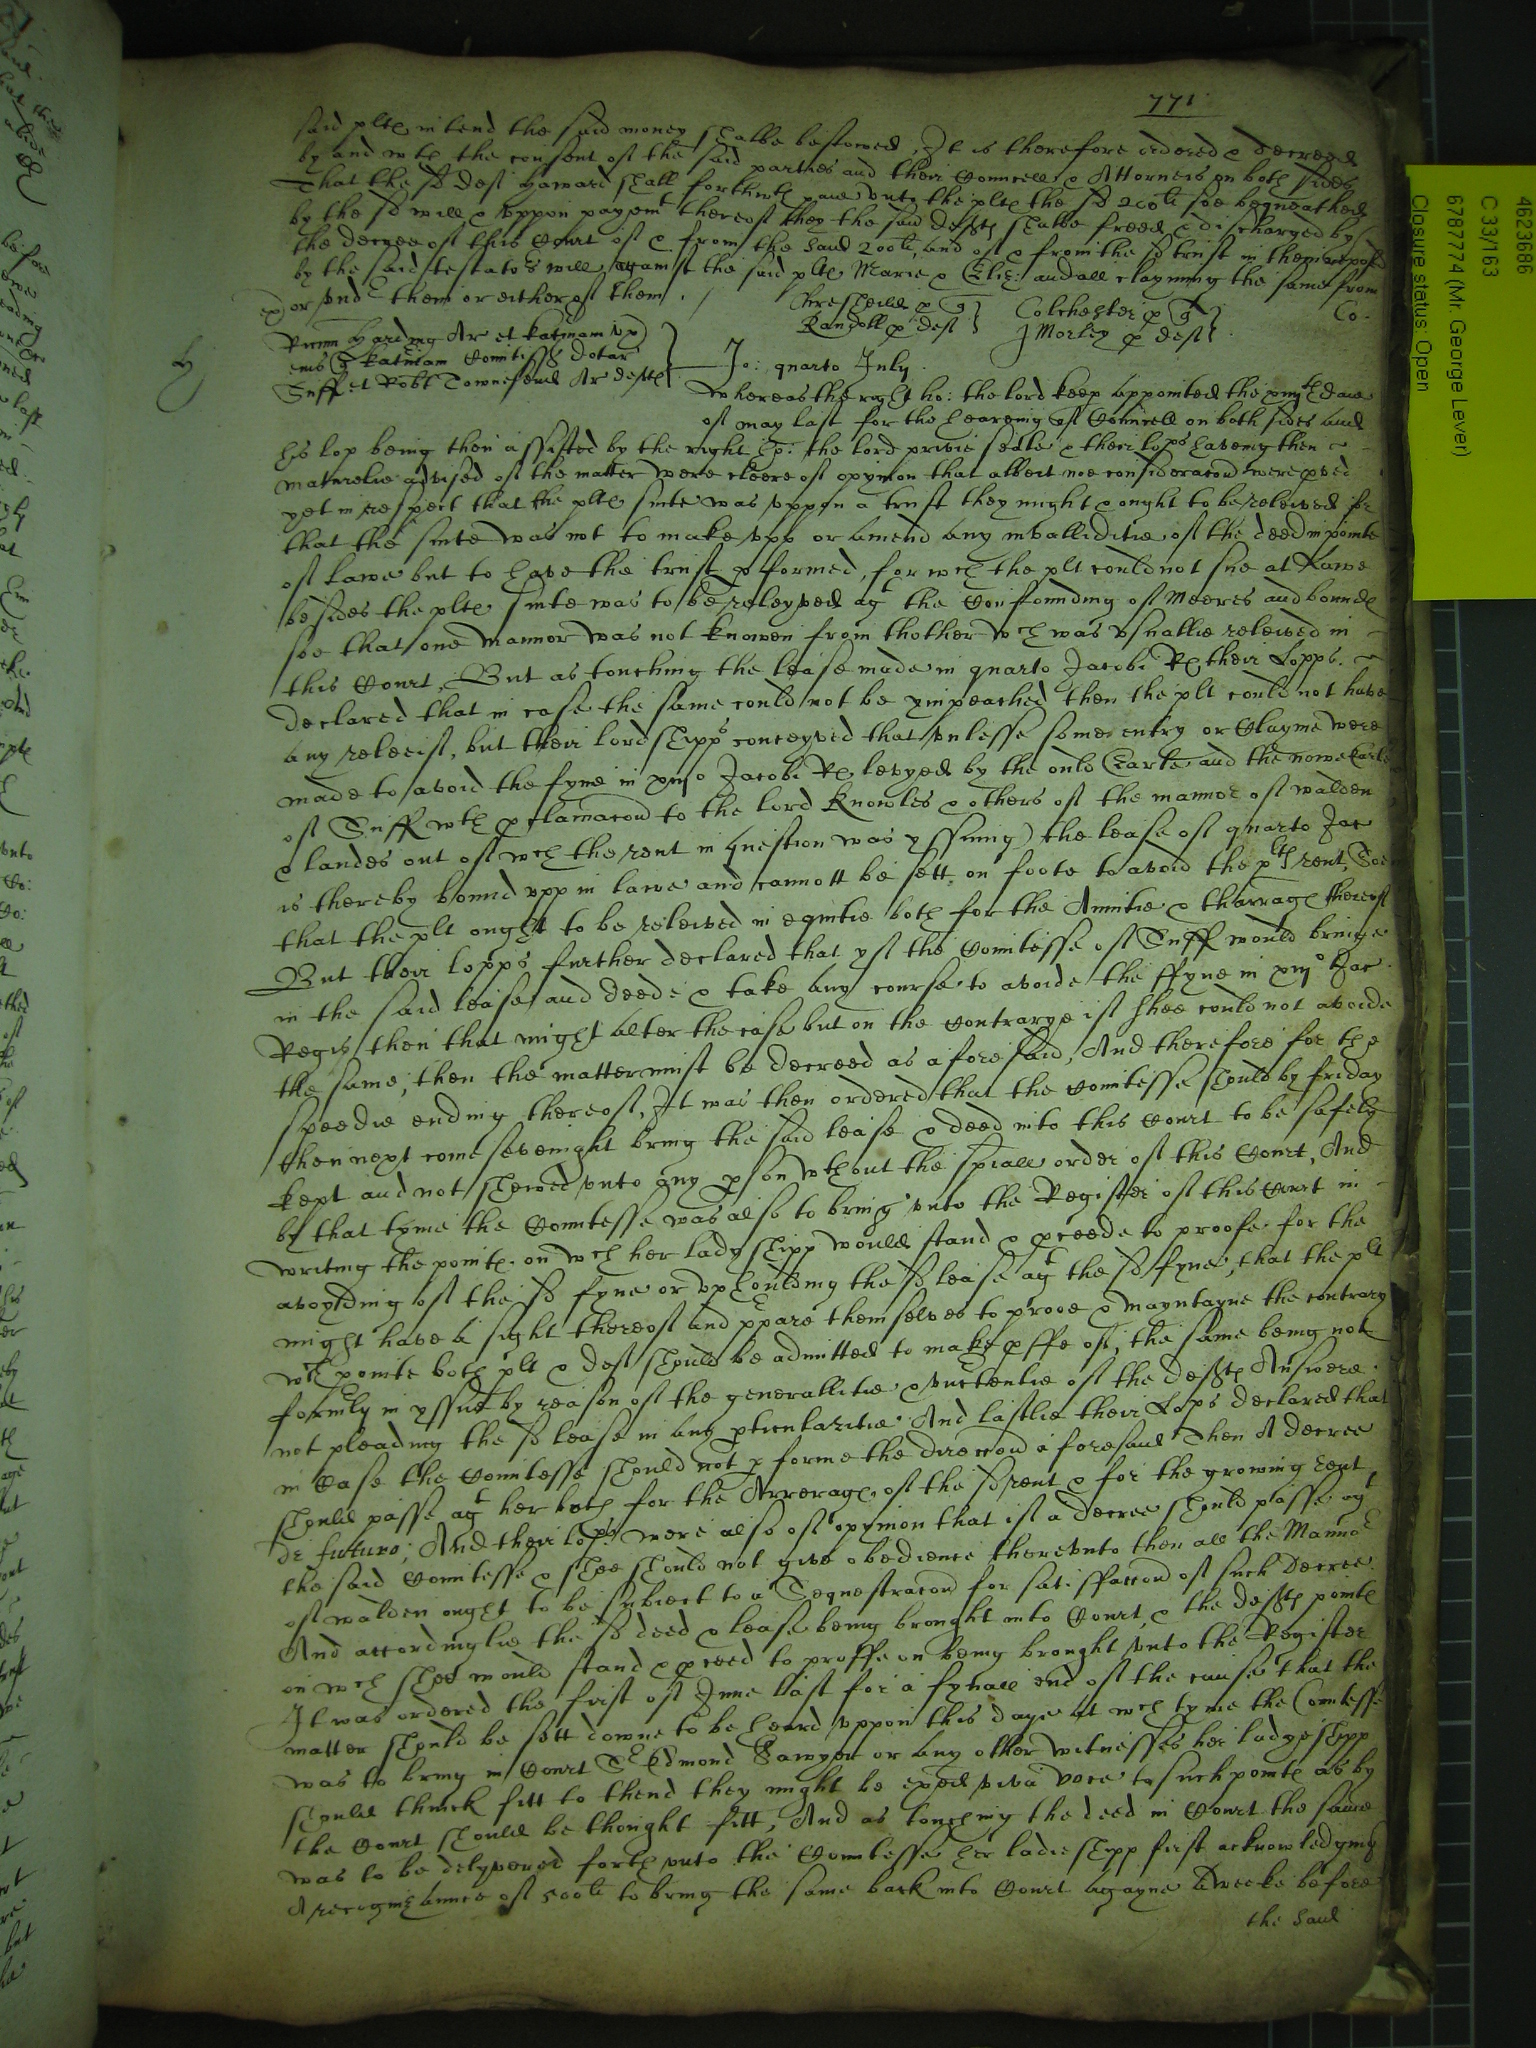 771
said pltes intend the said money shalbe bestowed, It is therefore ordered & decreed
by and wth the consent of the said parties and their Councell & Attorneis on both sides
That the sd deft Haward shall forthwth paie unto the plte the sd 200li soe bequeathed
by the sd will & uppon payemt thereof they the said deftes shalbe freed & discharged by
the decree of this Court of & from the said 200li, and of & from the sd trust in them reposed
by the said testators will, against the said plte Marie & Eliz: and all clayming the same from
or undr them or either of them.
Colchester p q
Co.
Randoll p deft J Morley p deft
Harding Ar et
Comitiss
Suff et Robt Townesend Ar deftes
Jo: quarto July
whereas the right ho: the lord keep appointed the daie
of may last for the heareing of Councell on both sides and
his lop being then assisted by the right ho: the lord privie seale & their lops haveing then
maturelie advised of the matter were cleere of opynion that albeit noe consideracon were pved
yet in respect that the plte suite was uppon a trust they might & ought to be releived for
that the suite was not to make upp or amend any invalliditie of the deed in pointe
of Lawe but to have the trust pformed, for wch the plt could not sue at Lawe
besides the pltes suite was to be releyved agt the Confounding of Meeres and boundes
soe that one mannor was not knowen from thother wch was usuallie releived in
this Court, But as touching the lease made in quarto Jacobi Rs their Lopps
declared that in case the same could not be ympeached then the plt could not have
any releeif, but their lordshipps conceyved that unlesse some entry or Clayme were
made to avoid the fyne in Jacobi Rs levyed by the ould Earle and the nowe Earle
of Suff wth pclamacon to the lord Knowles & others of the mannor of walden
& landes out of wch the rent in question was yssuing) the lease of quarto Jac
is thereby bound upp in lawe and cannott be sett on foote to avoid the plts rent, Soe
that the plt ought to be releived in equitie both for the Anuitie & tharrages thereof
But their lopps further declared that yf the Comitesse of Suff would bringe
in the said lease and deede & take any course to avoide the ffyne in Jac
Regis then that might alter the case but on the contrarye if shee could not avoide
the same, then the matter must be decreed as aforesaid, And therefore for the
speedie ending thereof, It was then ordered that the Comitesse should by friday
then next come sevenight bring the said lease & deed into this Court to be safely
kept and not shewed unto any pson wthout the spiall order of this Court, And
by that tyme the Comitesse was also to bring unto the Register of this Court in
writing the pointes on wch her ladyshipp would stand & pceede to proofe for the
avoyding of the sd fyne or upholding the sd lease agt the sd fyne, that the plt
might have a sight thereof and ppare themselves to prove & mayntayne the contrary
wch pointe both plt & deft should be admitted to make pffe of, the same being not
formly in yssue by reason of the generallitie & incertentie of the deftes Answere
not pleading the sd lease in any pticularitie And lastlie their Lops declared that
in Case the Comitesse should not pforme the direccon aforesaid Then A decree
should passe agt her both for the Arrerages of the sd rent & for the growing rent
de futuro; And their lops were also of opynion that if a decree should passe agt
the said Comitesse & shee should not give obedience thereunto then all the Mannor
of walden ought to be subiect to a Sequestracon for satisfaccon of such decree
And accordinglie the sd deed & lease being brought into Court, & the deftes pointes
on wch shee would stand & pceed to proffe on being brought unto the Register
It was ordered the first of June last for a fynall end of the cause that the
matter should be sett downe to be heard uppon this daye at wch tyme the Comitesse
was to bring in Court Sr Edmond Sawyer or any other witnesses her ladyeshipp
should thinck fitt to thend they might be exped viva voce to such pointes as by
the Court should be thought fitt, And as touching the deed in Court the same
was to be delyvered forth unto the Comitesse her ladieshipp first acknowledging
A recognizance of 500li to bring the same back into Court agayne A weeke before
the said
4623686
C 33/163
6787774 (Mr. George Lever)
Closure status: Open